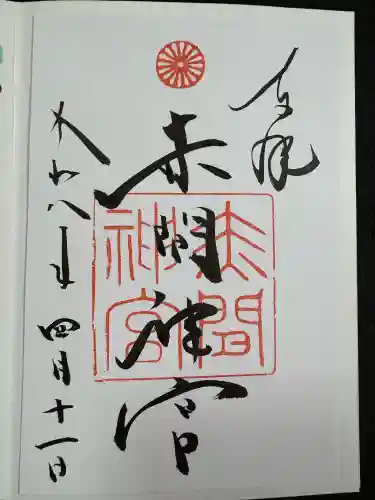 奉拝
赤間神宮
赤間
神宮
令和八年四月十一日